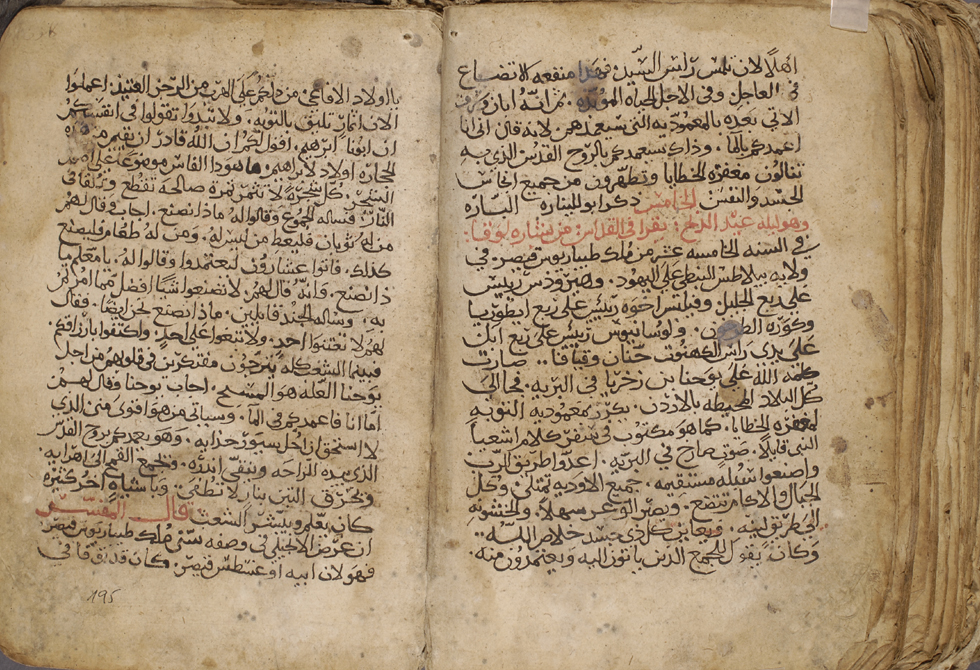 اهلًا لان يلمس راس السيد. فهذا منفعه الاتضاع
في العاجل وفي الاجل الحياه المؤبده. ثم انه ابان
الاتي بعده بالمعموديه التي سيعمدهم لانه قال اني انا
اعمدكم بالما. وذاك سيعمدكم بالروح القدس الذي به
تنالون مغفره الخطايا وتطهرون من جميع
الجسد والنفس الخامس ذكر ابو المناره الباره
وهو ليله عيد الدنح: يقرا في القداس: من بشاره لوقا:
في السنه الخامسه عشر من ملك طيباريوس قيصر. في
ولايه بيلاطس البنطي على اليهود. وهيرودس رييس
على ربع الجليل وفيلبس اخوه رييس على ربع ايطوريا
وكوره ولوسانيوس رييس على ربع
على يدى راس الكهنوت حنان وقيافا.. صارت
كلمه الله على يوحنا بن زخريا في البريه. فجا الى
كل البلاد المحيطه بالاردن. يكرز بمعموديه التوبه
لمغفره الخطايا. كما هو مكتوب في سفر كلام اشعيا
النبي قايلًا. صوت صارخ في البريه. اعدوا طريق الرب
واصنعوا سبله مستقيمه. جميع الاوديه تمتلئ وكل
الجبال والاكام تتضع. ويصير الوعر سهلًا. والخشونه
الى طريق لينه. ويعاين كل ذي جسد خلاص الله..
وكان يقول للجمع الذين ياتون اليه ويعتمدون منه.
يا اولاد الافاعي من دلكم على الهرب من الرجز العتيد. اعملوا
الان اثمار تليق بالتوبه. ولا تبدوا تقولوا في انفسكم
ان ابونا ابرهيم. اقول لكم ان الله قادر ان يقيم من هذه
الحجاره اولاد لابراهيم. ها هوذا الفاس موضوعًا على اصل
الشجر. كل شجرة لا تثمر ثمرة صالحة تقطع وتلقا في
النار. فساله الجموع وقالوا له ماذا نصنع. اجاب وقال لهم
من له ثوبان فليعط من ليس له. ومن له طعام فليصنع
كذلك. فاتوا عشارون ليعتمدوا وقالوا له. يا معلم ما
ذا نصنع. فانه قال لهم. لا تصنعوا شيًا افضل مما امرتم
به. وساله الجند قايلين. ماذا نصنع نحن ايضًا. فقال
لهم لا تعنتوا احد. ولا تبغوا على احد. واكتفوا بارزاقكم.
فبينما الشعب كله يترجون مفتكرين في قلوبهم من اجل
يوحنا العله هو المسيح. اجاب يوحنا وقال لهم
اما انا فاعمدكم في الما. وسياتي من هو اقوى مني الذي
لا استحق ان احل سيور حذايه. وهو يعمدكم بروح القدس
الذي بيده المراحه وينقي اندره. ويجمع القمح الى اهرايه.
ويحرق التبن بنار لا تطفى. وباشيا اخر كثيره
كان يعلم ويبشر الشعب قال المفسر
ان غرض الانجيلي في وصفه سني ملك طيباريوس قيصر.
فهو لان ابيه اوغسطس قيصر. كان قد في
195